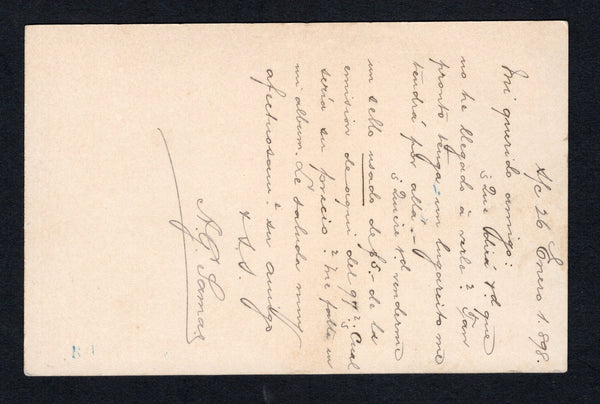 S/c 26 Enero 1898.
Mi querido amigo:
¿Qué dirá Vd. que
no he llegado á verle? Tan
pronto tenga un lugarcito me
tendrá por allá.—
¿Quiere Vd. venderme
un sello usado de $5,- de la
emision de aqui del 97? ¿Cual
seria su precio? me falta en
mi album. Le saluda muy
afectuosam.e su amigo
y S.S.
N. G. Lamas